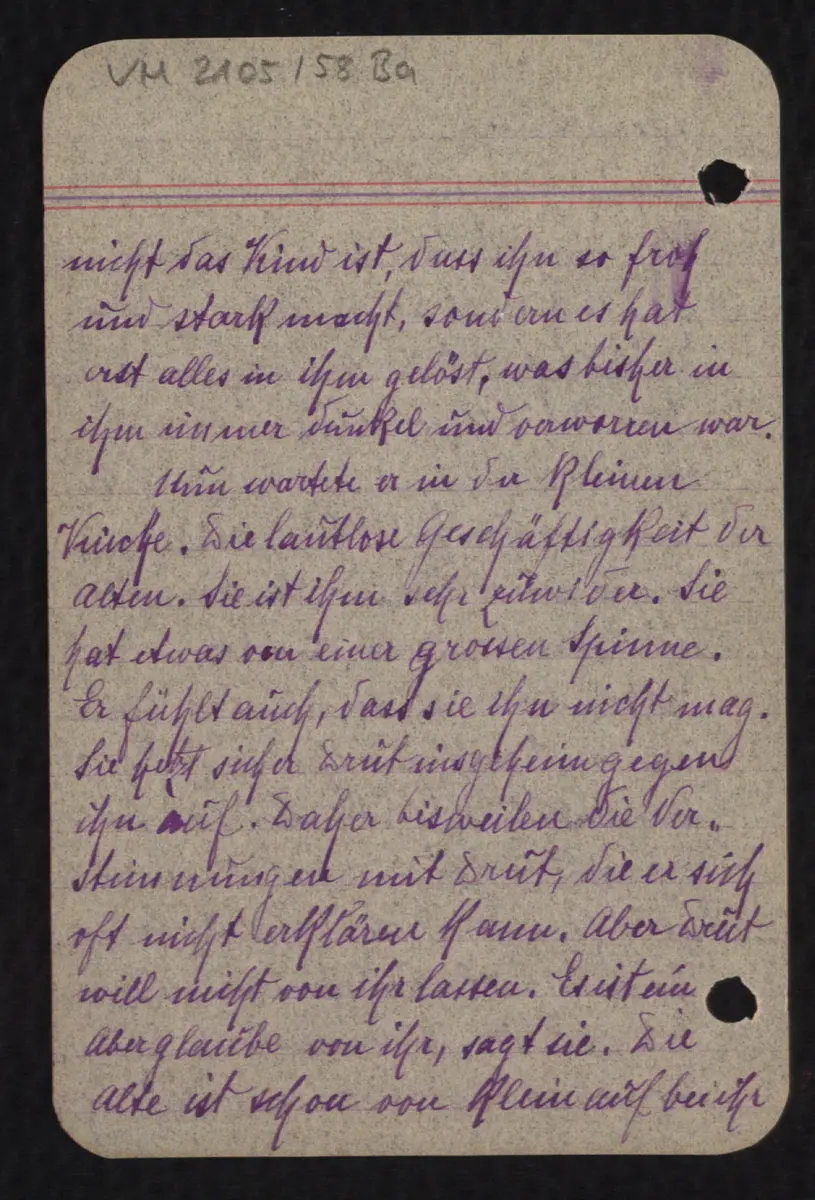 VM 2105 / 58 Ba
nicht das Kind ist, dass ihn so froh
und stark macht, sondern es hat
erst alles in ihm gelöst, was bisher in
ihm immer dunkel und verworren war.
Nun wartete er in der kleinen
Küche. Die lautlose Geschäftigkeit der
Alten. Sie ist ihm sehr zuwider. Sie
hat etwas von einer grossen Spinne.
Er fühlt auch, dass sie ihn nicht mag.
Sie hetzt sicher Drut insgeheim gegen
ihn auf. Daher bisweilen die Ver-
stimmungen mit Drut, die er sich
oft nicht erklären kann. Aber Drut
will nicht von ihr lassen. Es ist ein
Aberglaube von ihr, sagt sie. Die
Alte ist schon von klein auf bei ihr